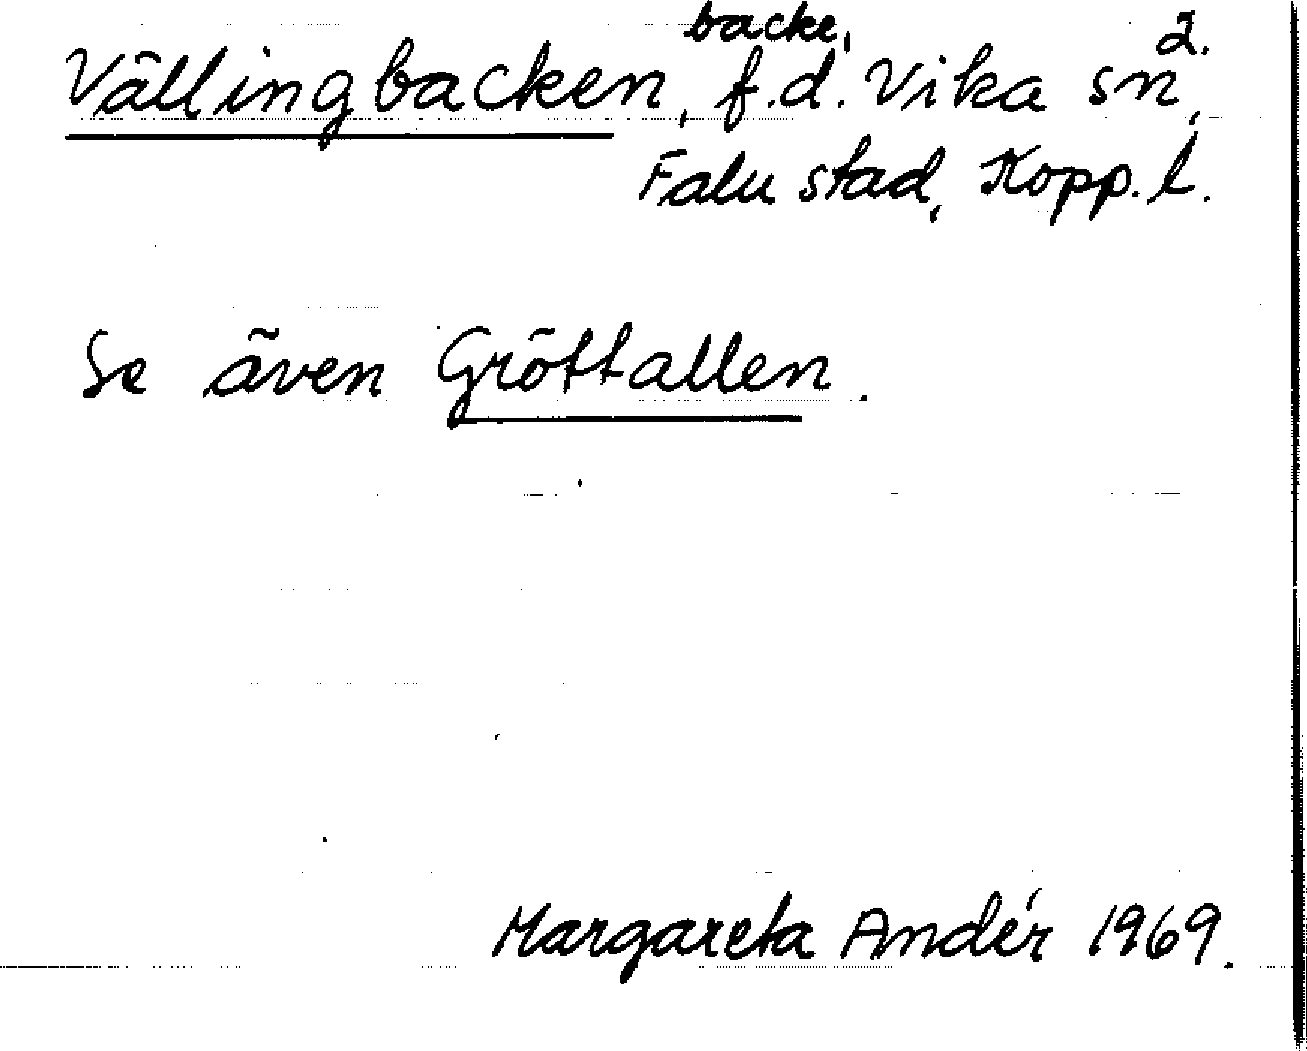 2.
Vällingbacken, backe, f.d. Vika sn,
Falu stad, Kopp. l.
Se även Gröttallen.
Margareta Andér 1969.